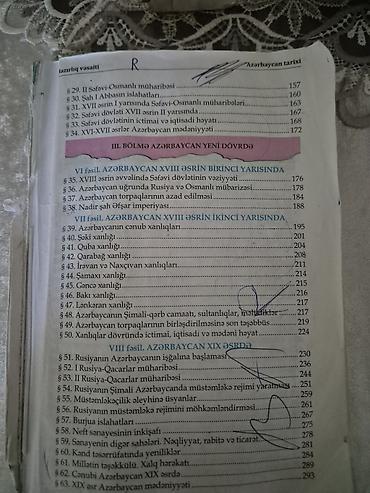 hazırlıq vəsaiti R Azərbaycan tarixi
§ 29. II Səfəvi-Osmanlı müharibəsi 157
§ 30. Şah I Abbasın islahatları 160
§ 31. XVII əsrin I yarısında Səfəvi-Osmanlı müharibələri 163
§ 32. Səfəvi dövləti XVII əsrin II yarısında 167
§ 33. Səfəvi dövlətinin ictimai və iqtisadi həyatı 168
§ 34. XVI-XVII əsrlər Azərbaycan mədəniyyəti 172
III. BÖLMƏ AZƏRBAYCAN YENİ DÖVRDƏ
VI fəsil. AZƏRBAYCAN XVIII ƏSRİN BİRİNCİ YARISINDA
§ 35. XVIII əsrin əvvəlində Səfəvi dövlətinin vəziyyəti 176
§ 36. Azərbaycan uğrunda Rusiya və Osmanlı mübarizəsi 178
§ 37. Azərbaycan torpaqlarının azad edilməsi 184
§ 38. Nadir şah Əfşar imperiyası 188
VII fəsil. AZƏRBAYCAN XVIII ƏSRİN İKİNCİ YARISINDA
§ 39. Azərbaycanın cənub xanlıqları 195
§ 40. Şəki xanlığı 201
§ 41. Quba xanlığı 204
§ 42. Qarabağ xanlığı 208
§ 43. İrəvan və Naxçıvan xanlıqları 211
§ 44. Şamaxı xanlığı 214
§ 45. Gəncə xanlığı 215
§ 46. Bakı xanlığı 216
§ 47. Lənkəran xanlığı 217
§ 48. Azərbaycanın Şimali-qərb camaatı, sultanlıqlar, məlikliklər 217
§ 49. Azərbaycan torpaqlarının birləşdirilməsinə son təşəbbüs 219
§ 50. Xanlıqlar dövründə ictimai, iqtisadi və mədəni həyat 224
VIII fəsil. AZƏRBAYCAN XIX ƏSRDƏ
§ 51. Rusiyanın Azərbaycanın işğalına başlaması 230
§ 52. I Rusiya-Qacarlar müharibəsi 236
§ 53. II Rusiya-Qacarlar müharibəsi 244
§ 54. Rusiyanın Şimali Azərbaycanda müstəmləkə rejimi yaratması 251
§ 55. Müstəmləkəçilik əleyhinə üsyanlar 259
§ 56. Rusiyanın müstəmləkə rejimini möhkəmləndirməsi 261
§ 57. Burjua islahatları 267
§ 58. Neft sənayesinin inkişafı 275
§ 59. Sənayenin digər sahələri. Nəqliyyat, rabitə və ticarət 278
§ 60. Kənd təsərrüfatında yeniliklər 281
§ 61. Millətin təşəkkülü. Xalq hərəkatı 284
§ 62. Cənubi Azərbaycan XIX əsrdə 289
§ 63. XIX əsr Azərbaycan mədəniyyəti 293